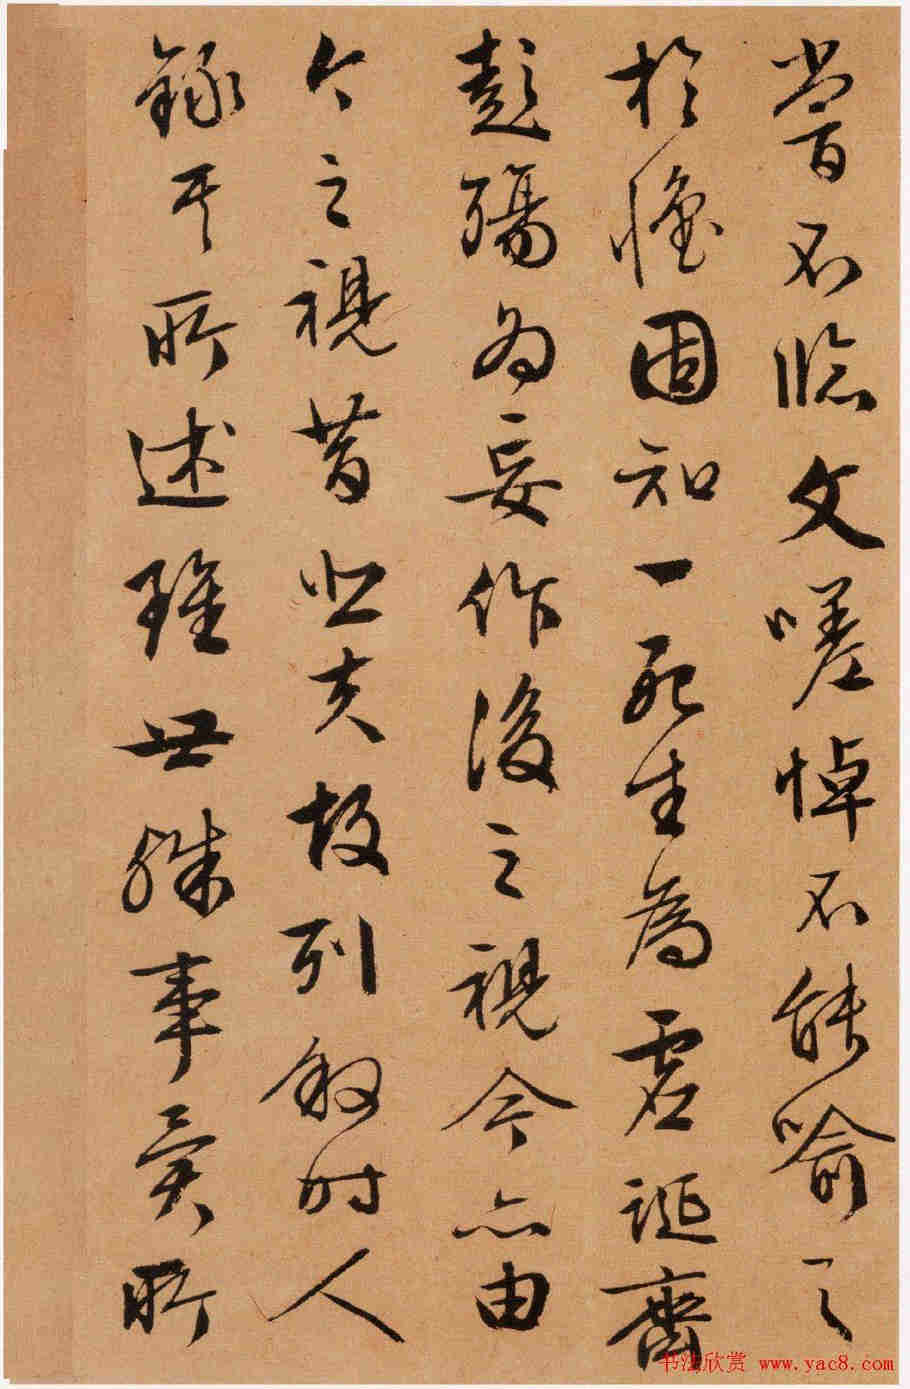 嘗不臨文嗟悼不能喻之
於懷固知一死生為虛誕齊
彭殤為妄作後之視今亦由
今之視昔悲夫故列敘時人
錄其所述雖世殊事異所
书法欣赏 www.yac8.com